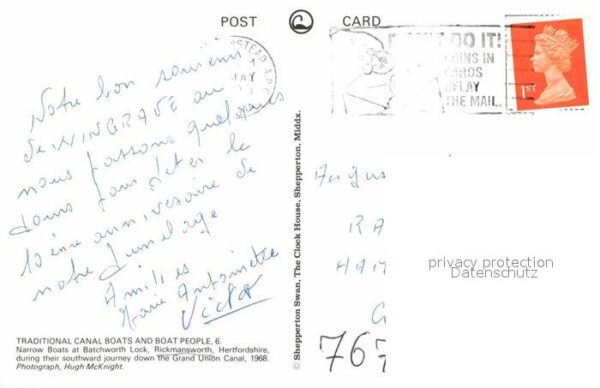 POST CARD
Notre bon souvenir
de WINGRAVE où
nous passons quelques
jours pour fêter le
10 ème anniversaire de
notre jumelage
Amitiés
Marie Antoinette
Victor
TRADITIONAL CANAL BOATS AND BOAT PEOPLE, 6.
Narrow Boats at Batchworth Lock, Rickmansworth, Hertfordshire,
during their southward journey down the Grand Union Canal, 1968.
Photograph, Hugh McKnight.
© Shepperton Swan, The Clock House, Shepperton, Middx.
MAY
DO IT!
COINS IN
CARDS
DELAY
THE MAIL.
1ST
RA
HAM
privacy protection
Datenschutz
G
767